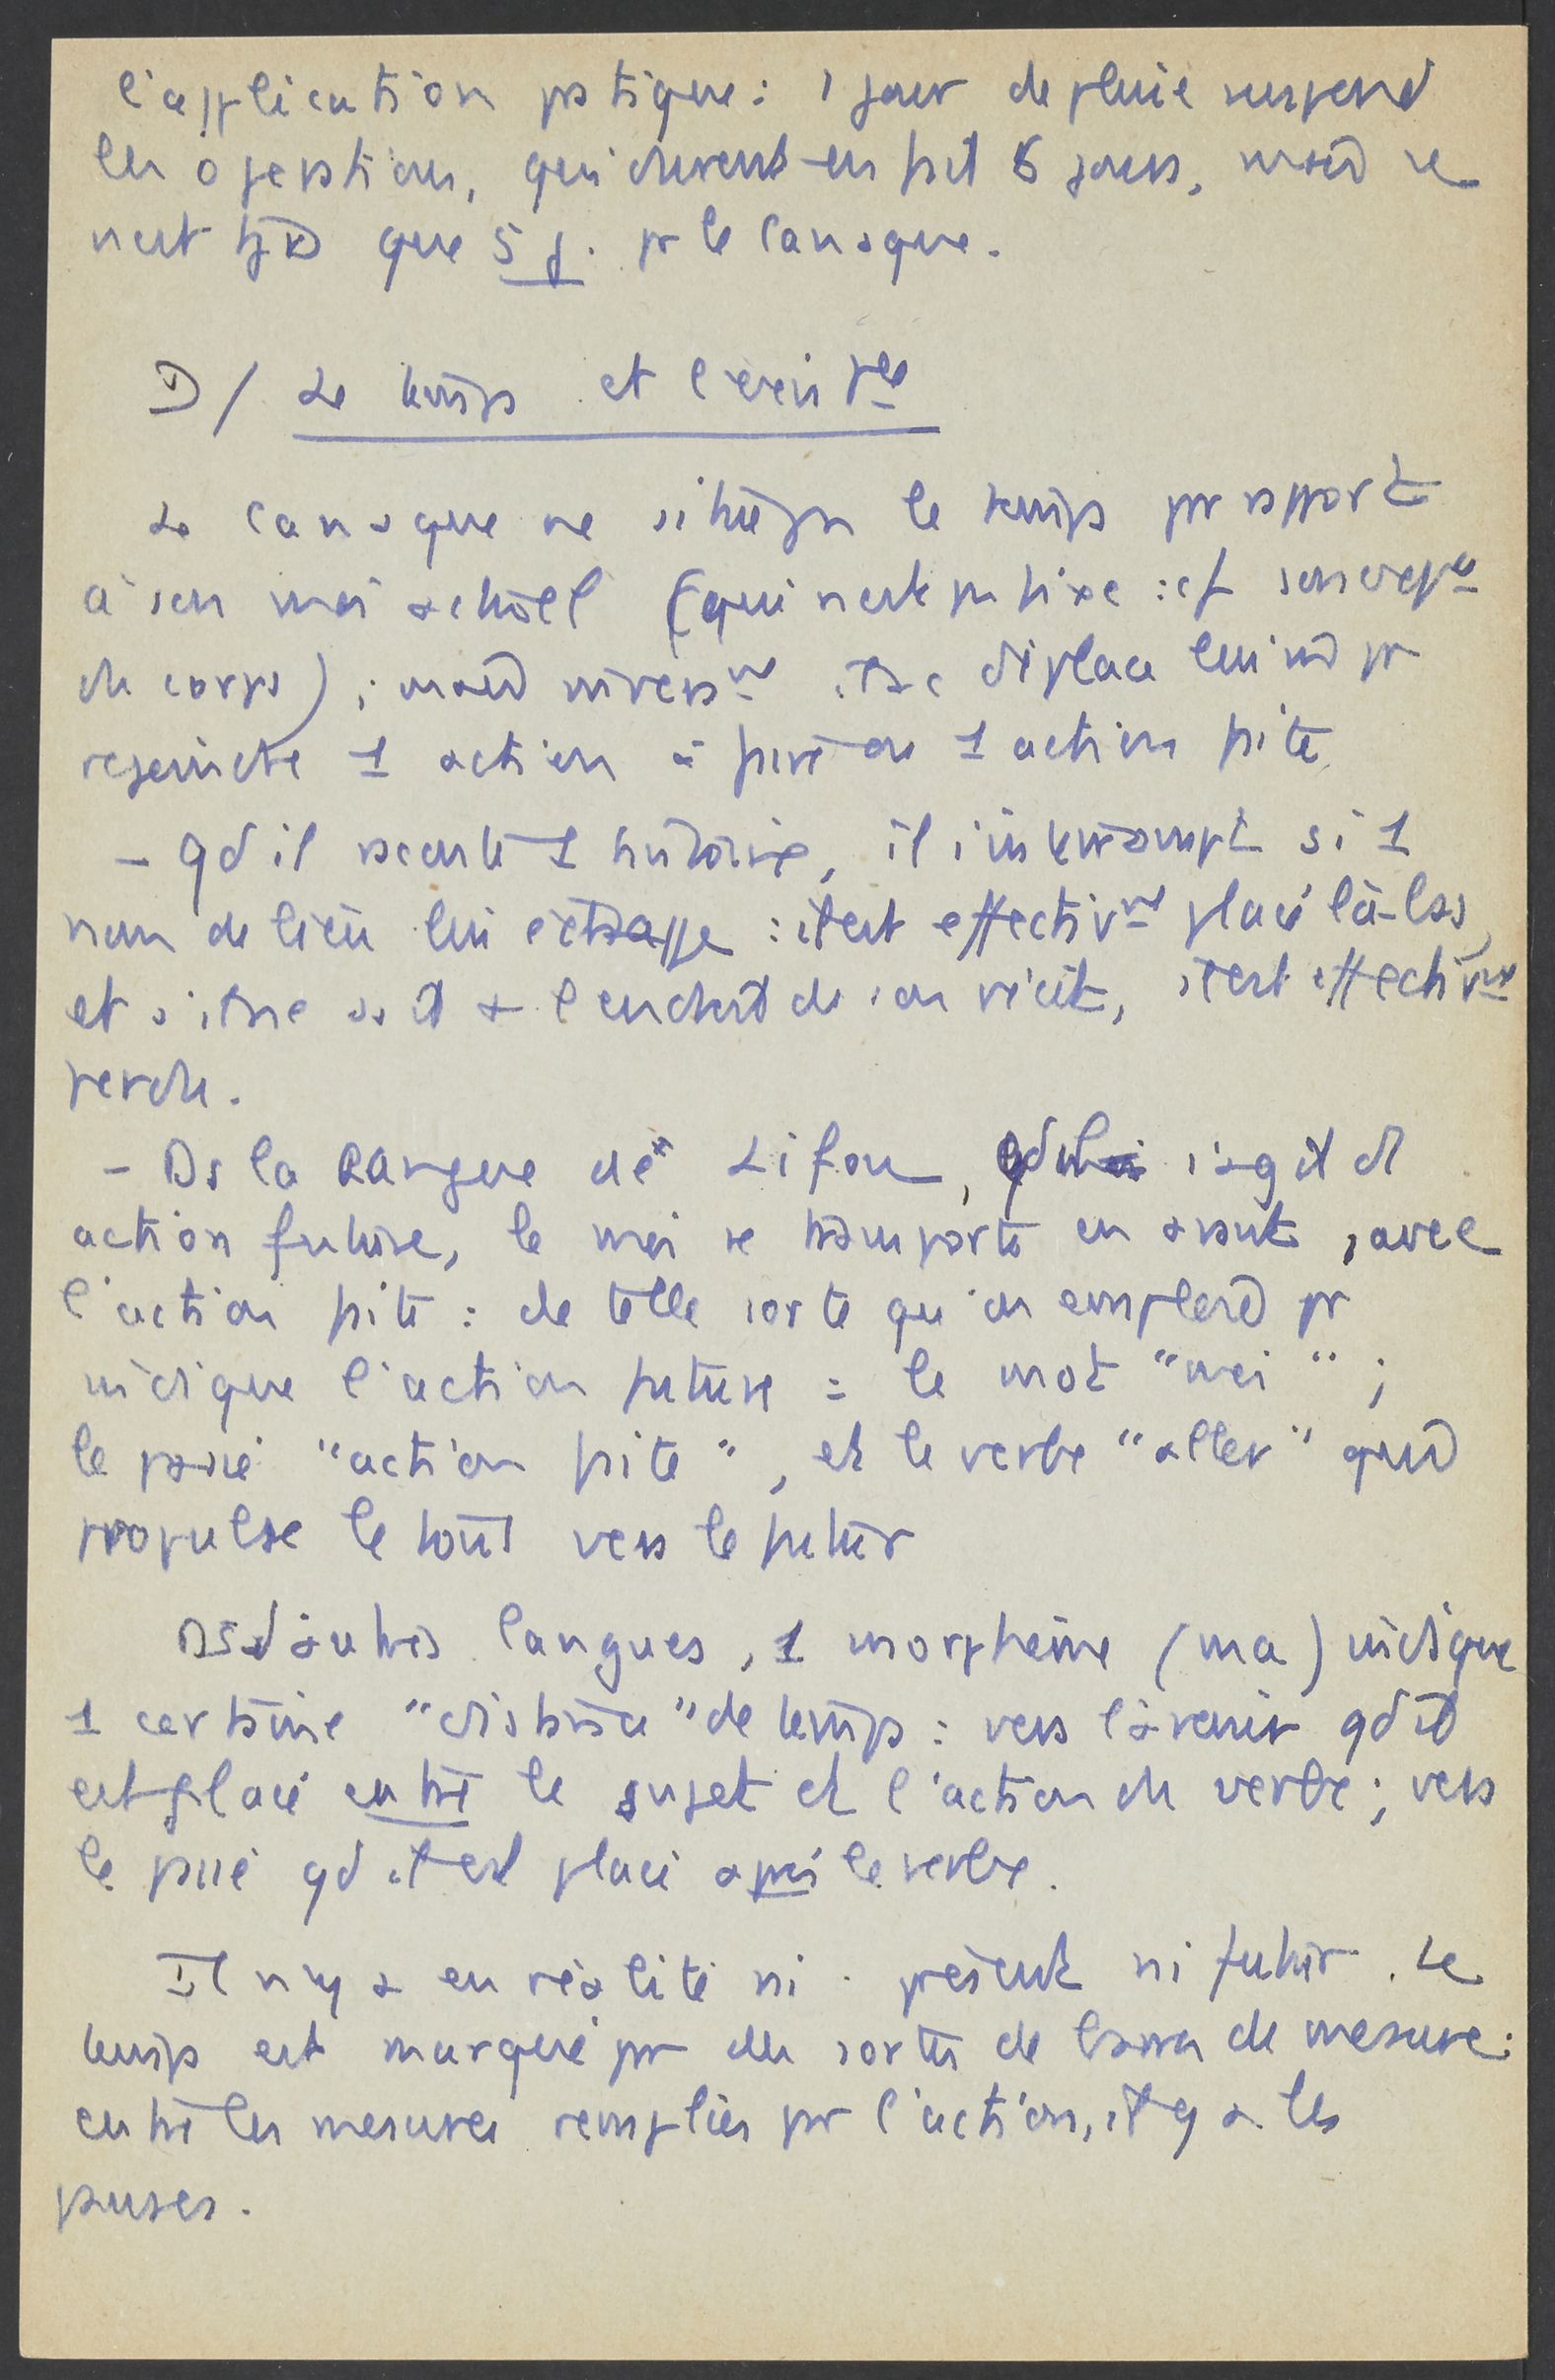 l'application pratique : 1 jour de pluie suspend
les opérations, qui durent en fait 6 jours, mais ce
n'est tjrs que 5 j. pr le Canaque.
D/ Le temps et l'événmt
Le Canaque ne situe pas le temps par rapport
à son moi actuel (qui n'est pas fixe : cf
du corps) ; mais il se déplace lui-même pr
rejoindre 1 action à faire ou 1 action faite
- Qd il raconte 1 histoire, il s'interrompt si 1
nom de lieu lui échappe : il est effectivmt placé là-bas,
et s'il ne sait + l'endroit de son récit, il est effectivmt
perdu.
- Ds la langue de Lifou, qd il s'agit d'
action future, le moi se transporte en avant, avec
l'action faite : de telle sorte qu'on emploie pr
indiquer l'action future : le mot "moi" ;
le passé "action faite", et le verbe "aller" qui
propulse le tout vers le futur
Ds d'autres langues, 1 morphème (ma) indique
1 certaine "distance" de temps : vers l'avenir qd il
est placé entre le sujet et l'action du verbe ; vers
le passé qd il est placé après le verbe.
Il n'y a en réalité ni présent ni futur. Le
temps est marqué par des sortes de barres de mesure :
entre les mesures remplies par l'action, il y a les
pauses.